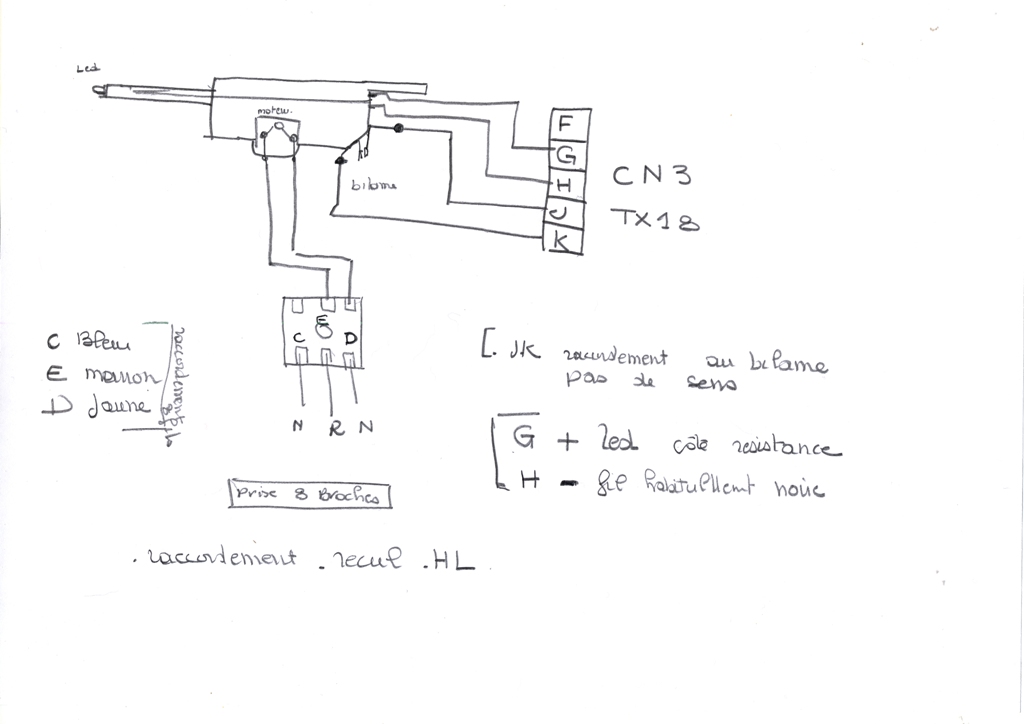 Led
moteur.
bilame
F
G
H
J
K
CN3
TX18
E
C
D
N R N
C Bleu
E marron
D Jaune
raccordement
[. JK raccordement au bilame
pas de sens
G + led côté resistance
H - fil habituellement noir
Prise 8 Broches
. raccordement . recul . HL